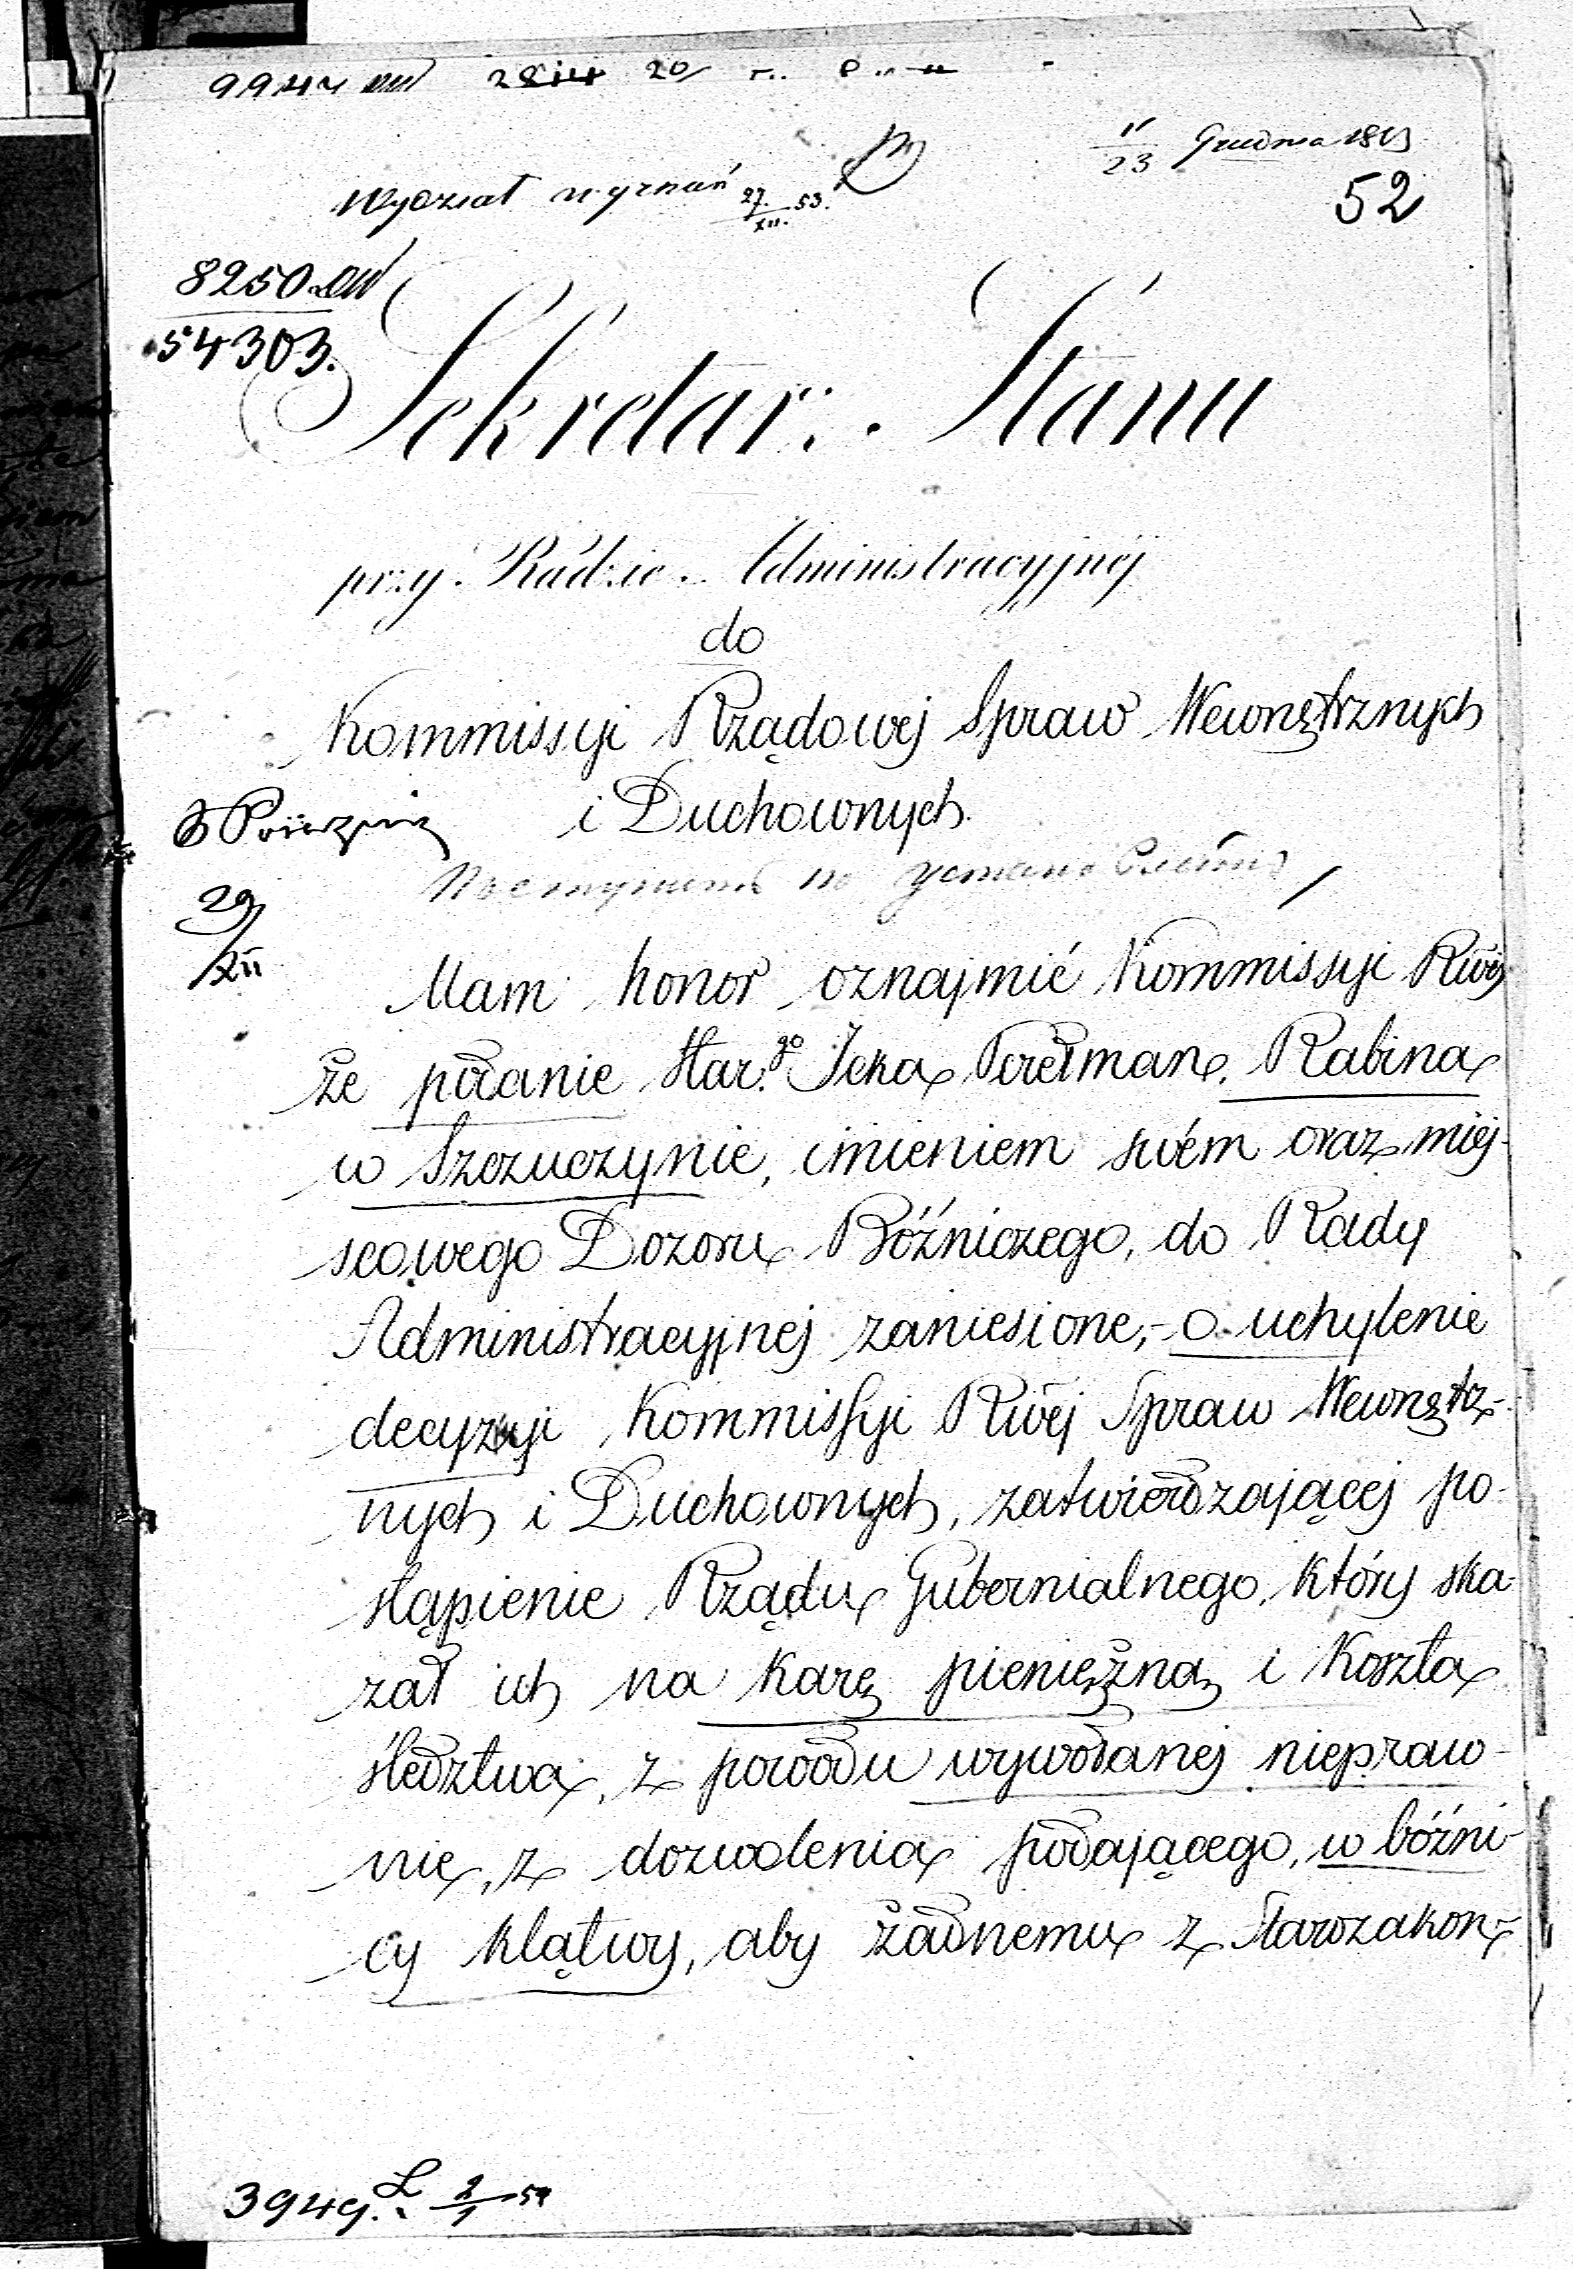 Wydział wyznań 27/XII. 53.
11/23 Grudnia 1853
52
8250
54303.
Sekretarz Stanu
przy Radzie Administracyjnéj
do
Kommissyi Rządowéj Spraw Wewnętrznych
i Duchownych.
29/XII
Mam honor oznajmić Kommissyi Rwéj
że podanie Star.go Icka Perelman, Rabina
w Szczuczynie, imieniem swém oraz miéj-
scowego Dozoru Bóźniczego, do Rady
Administracyjnéj zaniesione, o uchylenie
decyzyi Kommissyi Rwéj Spraw Wewnętrz-
nych i Duchownych, zatwierdzającéj po-
stąpienie Rządu Gubernialnego, który ska-
zał ich na karę pieniężną i koszta
śledztwa, z powodu wywołanéj nepraw-
nie, z dozwolenia podającego, w bóźni-
cy klątwy, aby żadnemu z Starozakon-
3949. 2/1 54